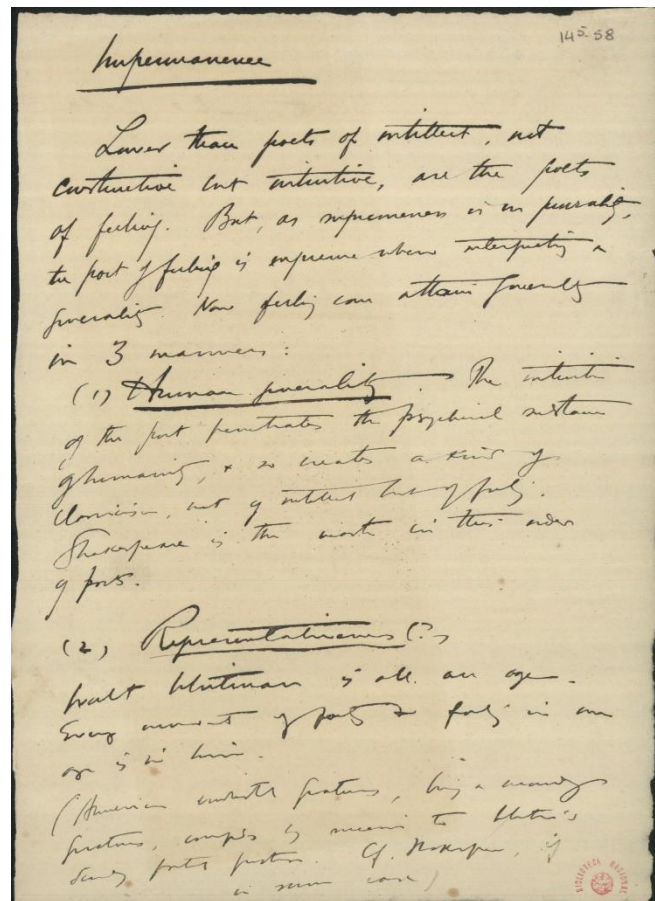 14-5 58
Impermanence
Lower than poets of intellect, not
constructive but intuitive, are the poets
of feeling. But, as supremeness is in generality,
the poet of feeling is supreme where interpreting a
generality. Now feeling can attain generality
in 3 manners:
(1) Human generality. The intuition
of the poet penetrates the psychical substance
of humanity, & so creates a kind of
classicism, not of intellect but of feeling.
Shakespeare is the in this order
of poets.
(2) Representativeness (?)
Walt Whitman is all an age.
Every of in one
age is in him.
(American gestures, being a
gestures, by means to
Cf. if
in some case)
BIBLIOTECA NACIONAL